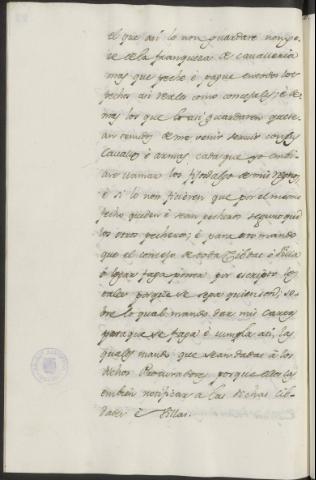 el que asi lo non guardare non go-
ze de la franqueza de cavalleria
mas que peche é pague en todos los
pechos asi reales como concejales, é de-
mas los que lo asi guardaren que se-
an tenudos de me venir servir con sus
cavallos é armas, cada que yo embi-
are llamar los fijosdalgo de mis regnos,
é si lo non ficieren que por el mismo
fecho queden é sean pecheros segun que
los otros pecheros; é para esto mando
que el concejo de cada Cibdat é Villa
ó lugar faga poner por escripto los
tales porque se sepa quien son, so-
bre lo qual mando dar mis cartas
para que se faga é cumpla asi, las
quales mando que sean dadas á los
dichos Procuradores, porque ellos las
embien notificar á las dichas Cib-
dades é Villas.